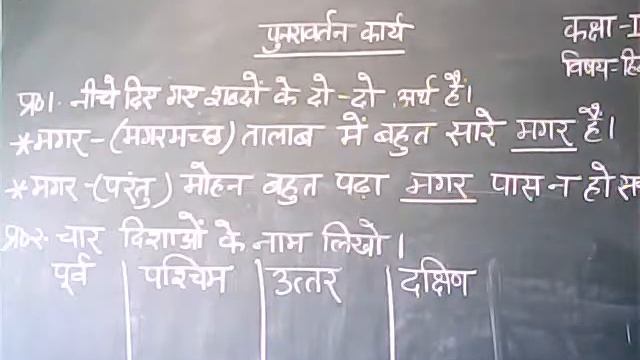 पुनरावर्तन कार्य
कक्षा-
विषय-
प्र०1. नीचे दिए गए शब्दों के दो-दो अर्थ है।
*मगर-(मगरमच्छ) तालाब में बहुत सारे मगर हैं।
*मगर-(परंतु) मोहन बहुत पढ़ा मगर पास न हो
प्र०२. चार दिशाओं के नाम लिखो।
पूर्व पश्चिम उत्तर दक्षिण